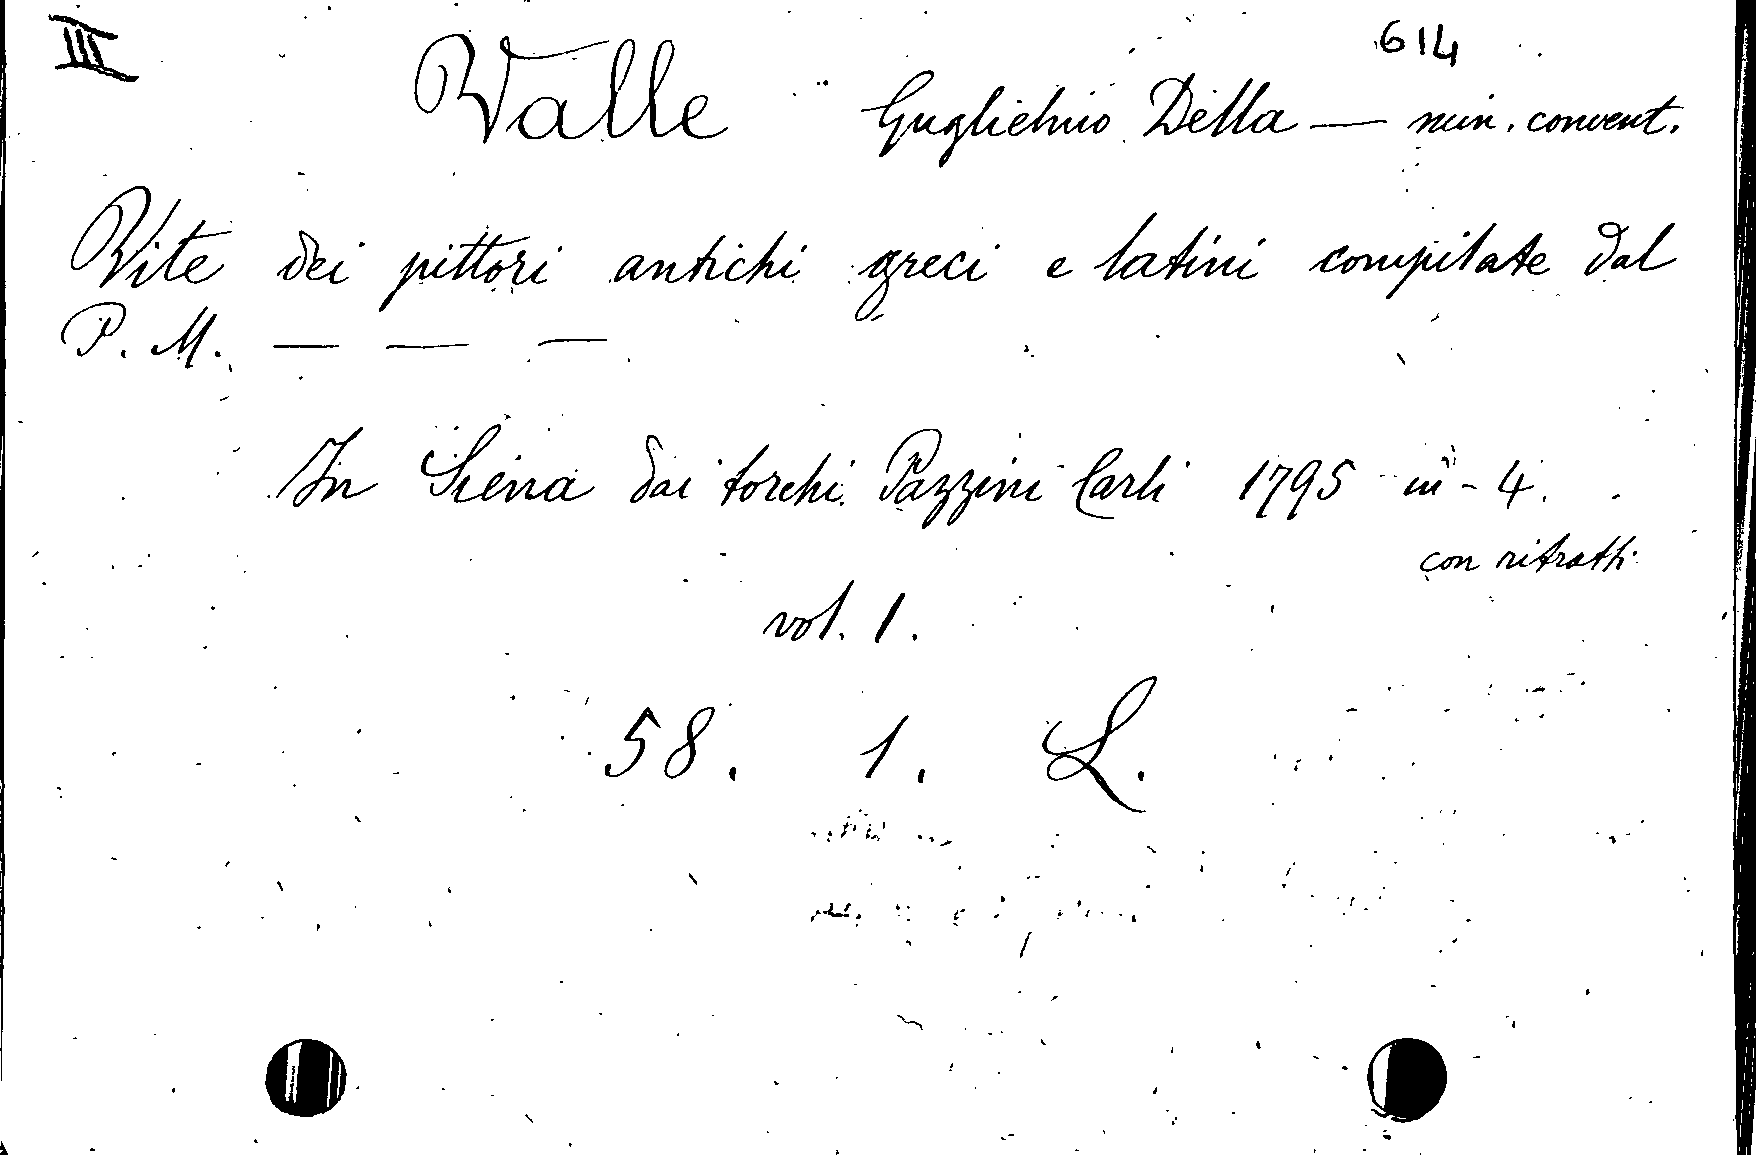 III 614
Valle Guglielmo Della — min. convent.
Vite dei pittori antichi greci e latini compilate dal
P. M. — — —
In Siena dai torchi Pazzini Carli 1795 in - 4.
con ritratti
vol. 1.
58. 1. L.